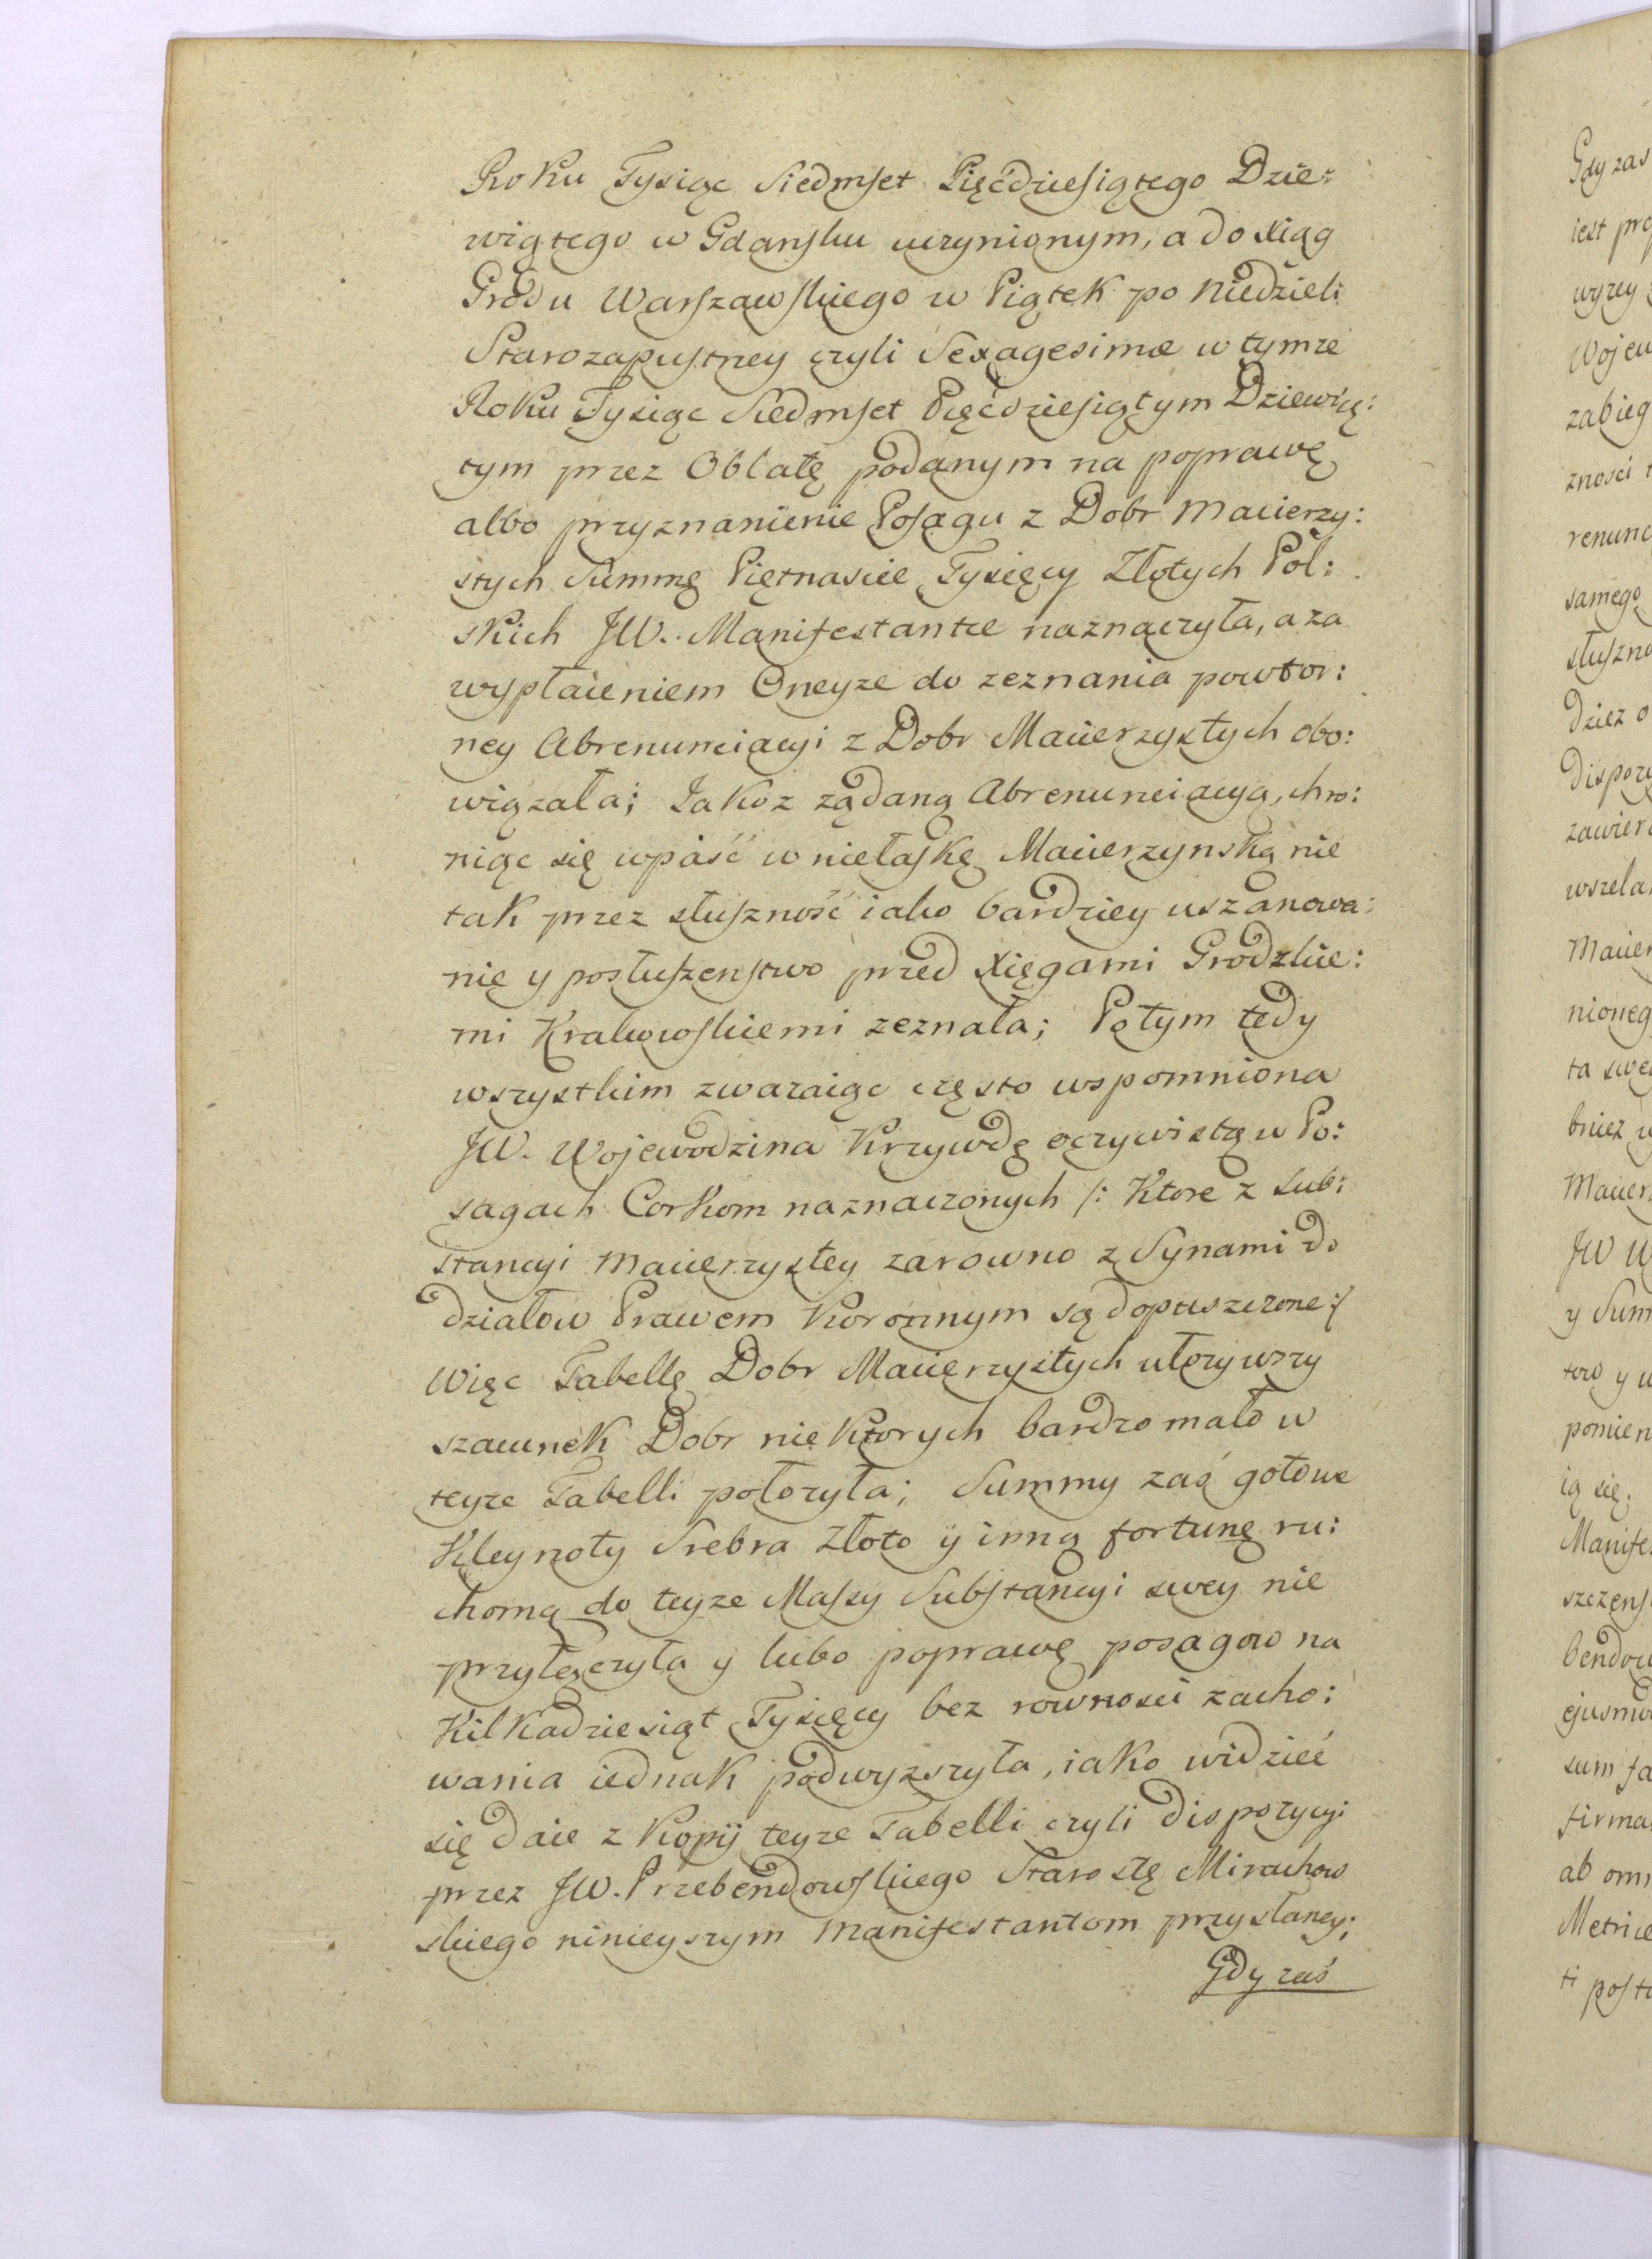 Roku Tysiąc Siedmset Pięćdziesiątego Dzie:
wiątego w Gdansku uczynionym, a do Xiąg
Grodu Warszawskiego w Piątek po Niedzieli
Starozapustney czyli Sexagesimæ w tymze
Roku Tysiąc Siedmset Pięćdziesiątym Dziewią:
tym przez Oblatę podanym na poprawę
albo przyznanienie Posagu z Dobr Macierzy:
stych Summę Piętnascie Tysięcy Złotych Pol:
skich JW. Manifestantce naznaczyła, a za
wypłaceniem Oneyze do zeznania powtor:
ney Abrenunciacyi z Dobr Macierzystych obo:
wiązała; Jakoz ządaną Abrenunciacyą, chro:
niąc się wpaść w niełaskę Macierzynską nie
tak przez słuszność iako bardziey uszanowa:
nię y posłuszenstwo przed Xięgami Grodzkie:
mi Krakowskiemi zeznała; Potym tedy
wszystkim zwazaiąc często wspomniona
JW. Wojewodzina Krzywdę oczywistą w Po:
sagach Corkom naznaczonych /: Ktore z Sub:
stancyi Macierzystey zarowno z Synami do
działow Prawem Koronnym są dopuszczone :/
Więc Tabellę Dobr Macierzystych ułozywszy
szacunek Dobr niektorych bardzo mało w
teyze Tabelli połozyła; Summy zaś gotowe
Kleynoty Srebra Złoto y inną fortunę ru:
chomą do teyze Massy Substancyi swey nie
przyłączyła y lubo poprawę posagow na
Kilkadziesiąt Tysięcy bez rownosci zacho:
wania iednak podwyzszyła, iako widzieć
się daie z Kopij teyze Tabelli czyli dispozycyi
przez JW. Przebendowskiego Starostę Mirachow
skiego ninieyszym Manifestantom przysłaney;
Gdy zaś